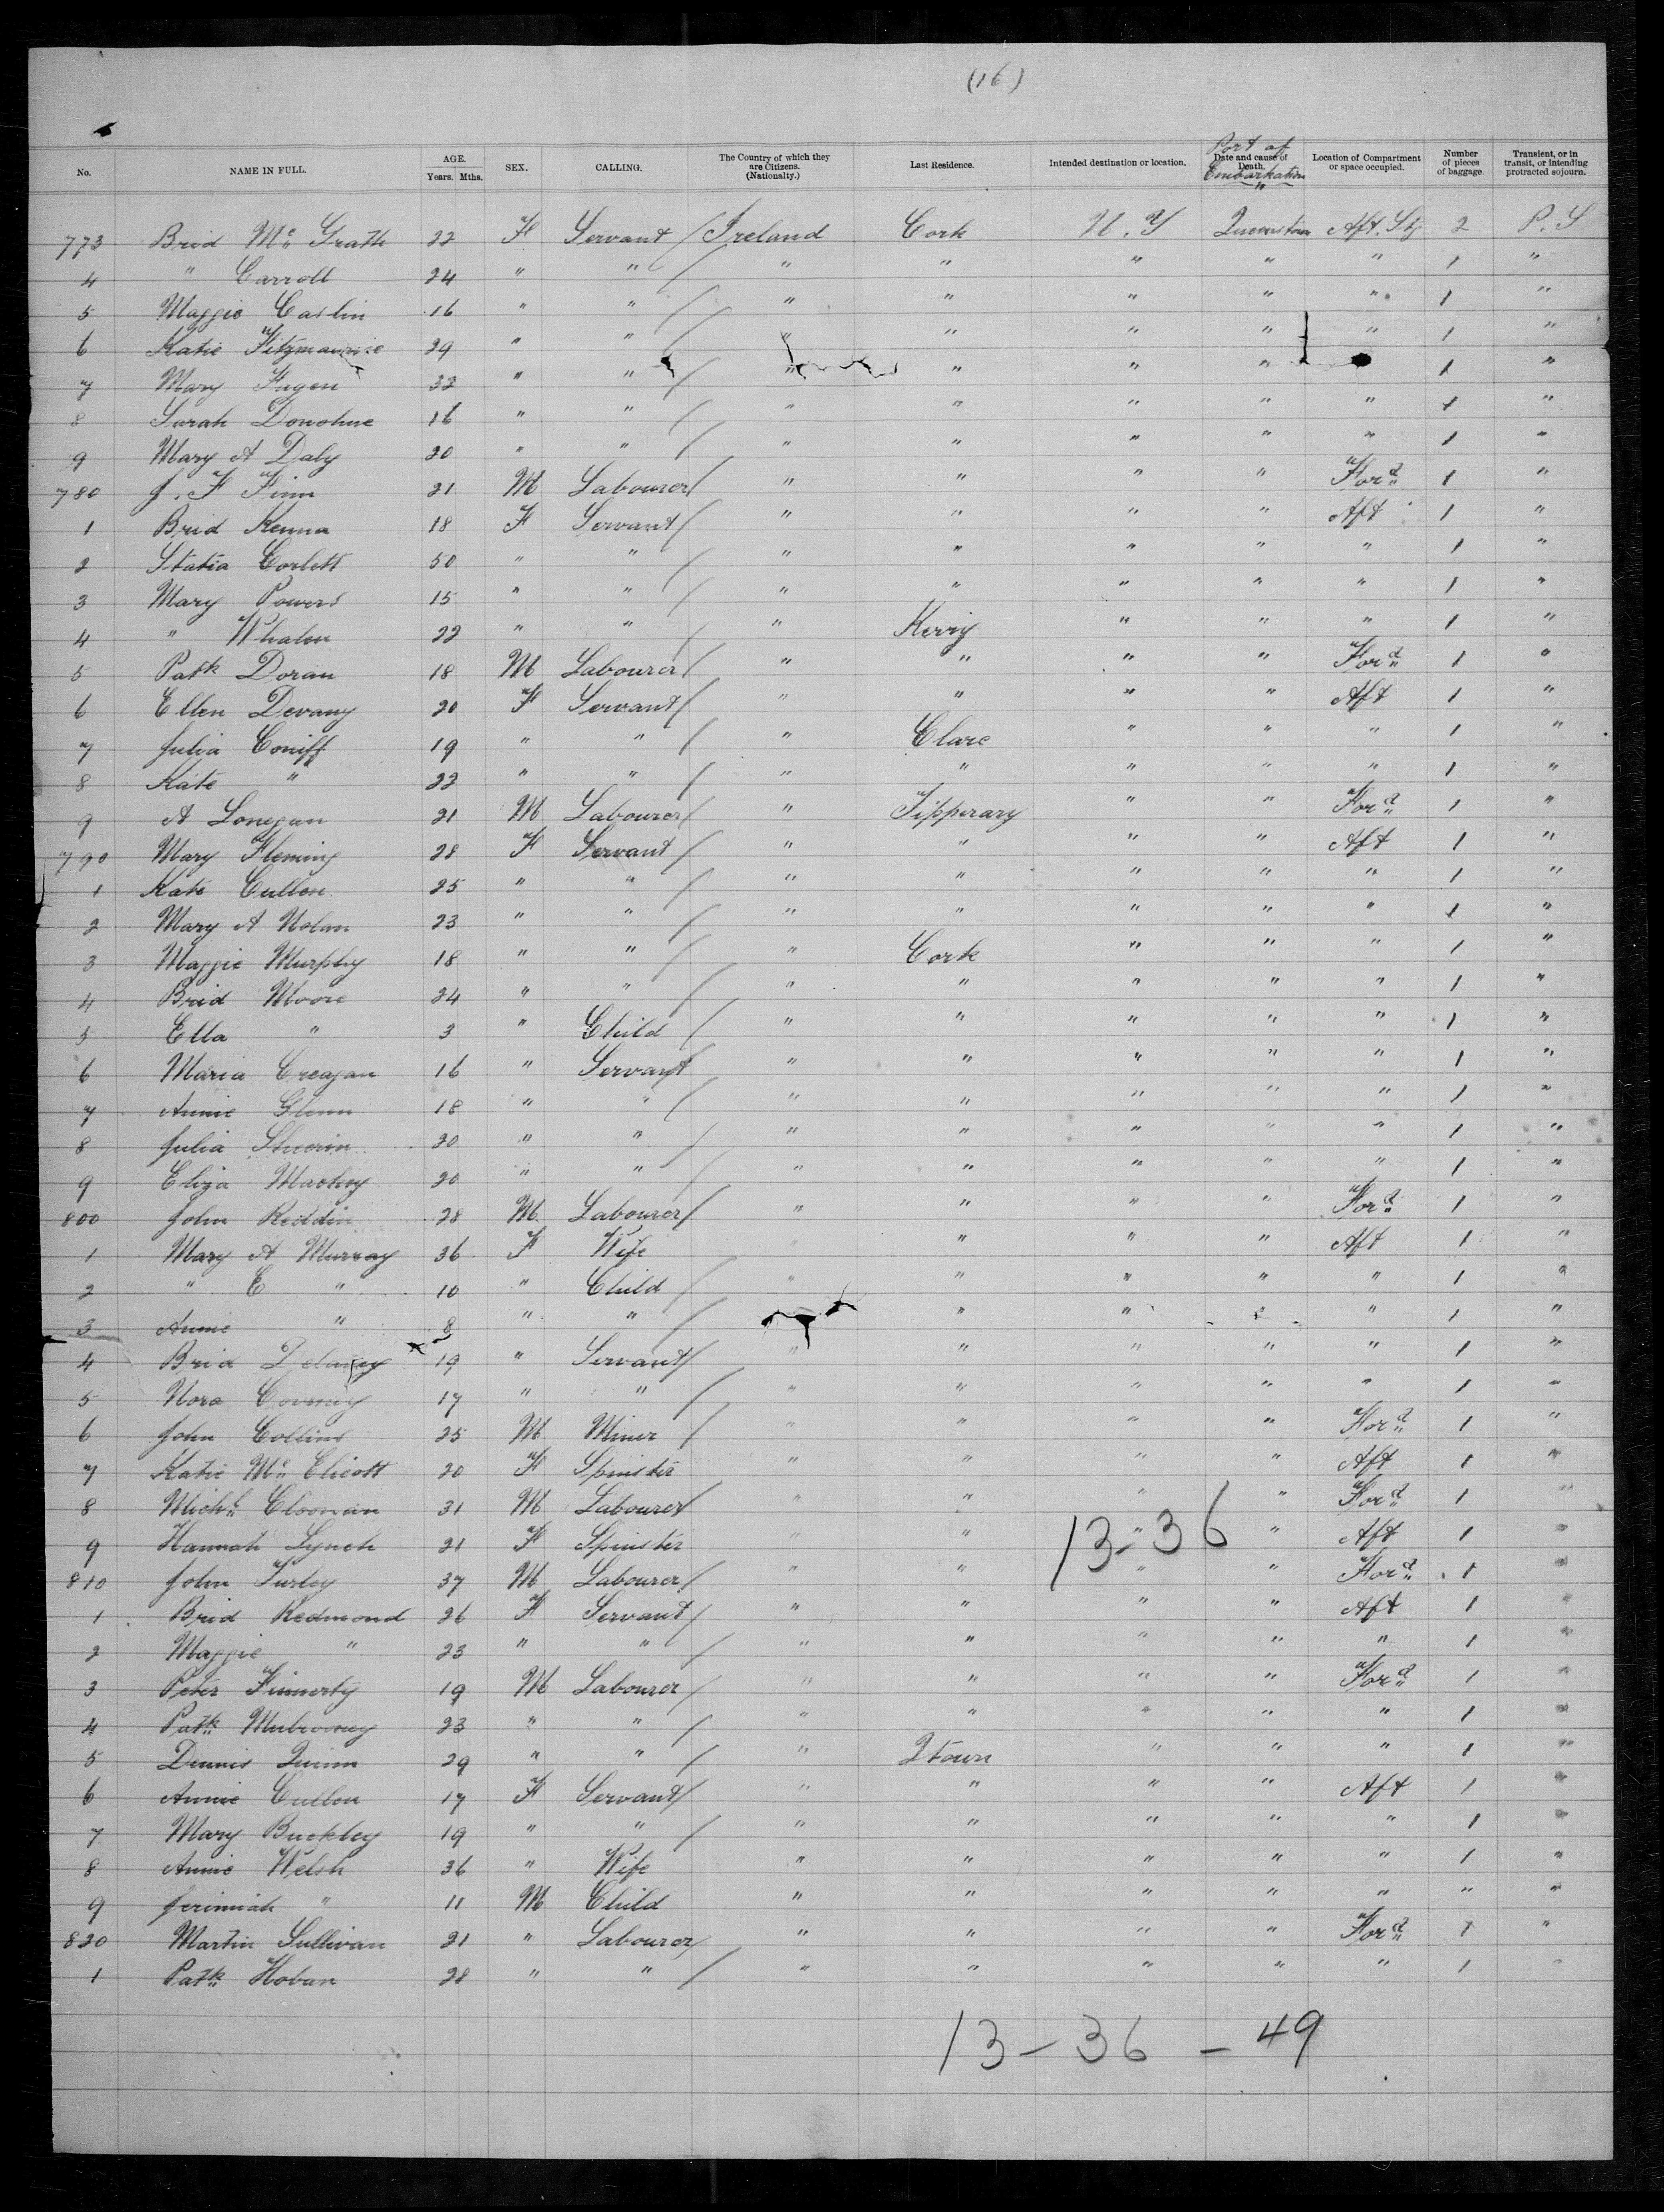 (16)
No. NAME IN FULL. AGE. Years. Mths. SEX. CALLING. The Country of which they are Citizens. (Nationality.) Last Residence. Intended destination or location. Date and cause of Death. Port of Embarkation Location of Compartment or space occupied. Number of pieces of baggage. Transient, or in transit, or intending protracted sojourn.
773 Brid Mc Grath 22 F Servant / Ireland Cork N. Y Queenstown Aft. Stg 2 P. S
4 " Carroll 24 " " / " " " " " 1 "
5 Maggie Carlin 16 " " / " " " " " 1 "
6 Katie Fitzmaurice 29 " " / " " " " " 1 "
7 Mary 32 " " / " " " " 1 "
8 Sarah Donohue 16 " " / " " " " " 1 "
9 Mary A Daly 20 " " / " " " " " 1 "
780 J. F Finn 21 M Labourer / " " " " For'd 1 "
1 Brid Kenna 18 F Servant / " " " " Aft 1 "
2 Statia Corlett 50 " " / " " " " " 1 "
3 Mary Powers 15 " " / " " " " " 1 "
4 " Whalen 22 " " / " Kerry " " " 1 "
5 Patk Doran 18 M Labourer / " " " " For'd 1 "
6 Ellen Devany 20 F Servant / " " " " Aft 1 "
7 Julia Coniff 19 " " / " Clare " " " 1 "
8 Kate " 22 " " / " " " " " 1 "
9 A Lonegan 21 M Labourer / " Tipperary " " For'd 1 "
790 Mary Fleming 28 F Servant / " " " " Aft 1 "
1 Kate Cullen 25 " " / " " " " " 1 "
2 Mary A Nolan 23 " " / " " " " " 1 "
3 Maggie Murphy 18 " " / " Cork " " " 1 "
4 Brid Moore 24 " " / " " " " " 1 "
5 Ella " 3 " Child / " " " " " 1 "
6 Maria Creagan 16 " Servant / " " " " " 1 "
7 Annie Glenn 18 " " / " " " " " 1 "
8 Julia 20 " " / " " " " " 1 "
9 Eliza Mackey 20 " " / " " " " " 1 "
800 John Reddin 28 M Labourer / " " " " For'd 1 "
1 Mary A Murray 36 F Wife " " " " Aft 1 "
2 " E " 10 " Child / " " " " " 1 "
3 Annie " 8 " " / " " " " 1 "
4 Brid Delaney 19 " Servant / " " " " " 1 "
5 Nora Coveney 17 " " / " " " " " 1 "
6 John Collins 25 M Miner / " " " " For'd 1 "
7 Katie Mc Elicott 20 F Spinster " " " " Aft 1 "
8 Michl Cloonan 31 M Labourer " " " " For'd 1 "
9 Hannah Lynch 21 F Spinster " " " " Aft 1 "
13-36
810 John Turley 37 M Labourer / " " " " For'd 1 "
1 Brid Redmond 26 F Servant / " " " " Aft 1 "
2 Maggie " 23 " " / " " " " " 1 "
3 Peter Finnerty 19 M Labourer / " " " " For'd 1 "
4 Patk Mulrooney 23 " " / " " " " " 1 "
5 Dennis Quinn 29 " " / " Qtown " " " 1 "
6 Annie Cullen 17 F Servant / " " " " Aft 1 "
7 Mary Buckley 19 " " / " " " " " 1 "
8 Annie Welsh 36 " Wife " " " " " 1 "
9 Jerimiah " 11 M Child " " " " " " "
820 Martin Sullivan 21 " Labourer / " " " " For'd 1 "
1 Patk Hoban 28 " " / " " " " " 1 "
13-36-49